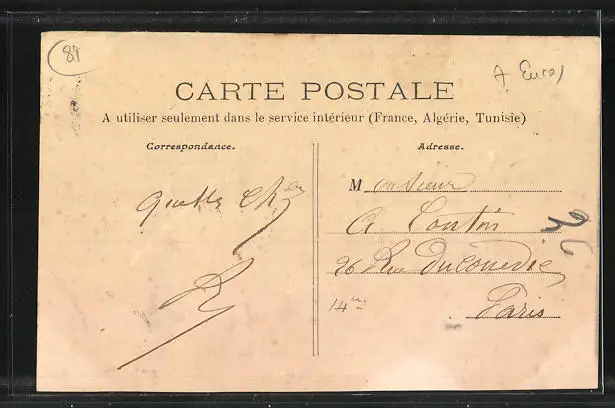 87
A Euros
CARTE POSTALE
A utiliser seulement dans le service intérieur (France, Algérie, Tunisie)
Correspondance.
Adresse.
Monsieur
A Toutin
26 Rue Ducouedic
14me
Paris